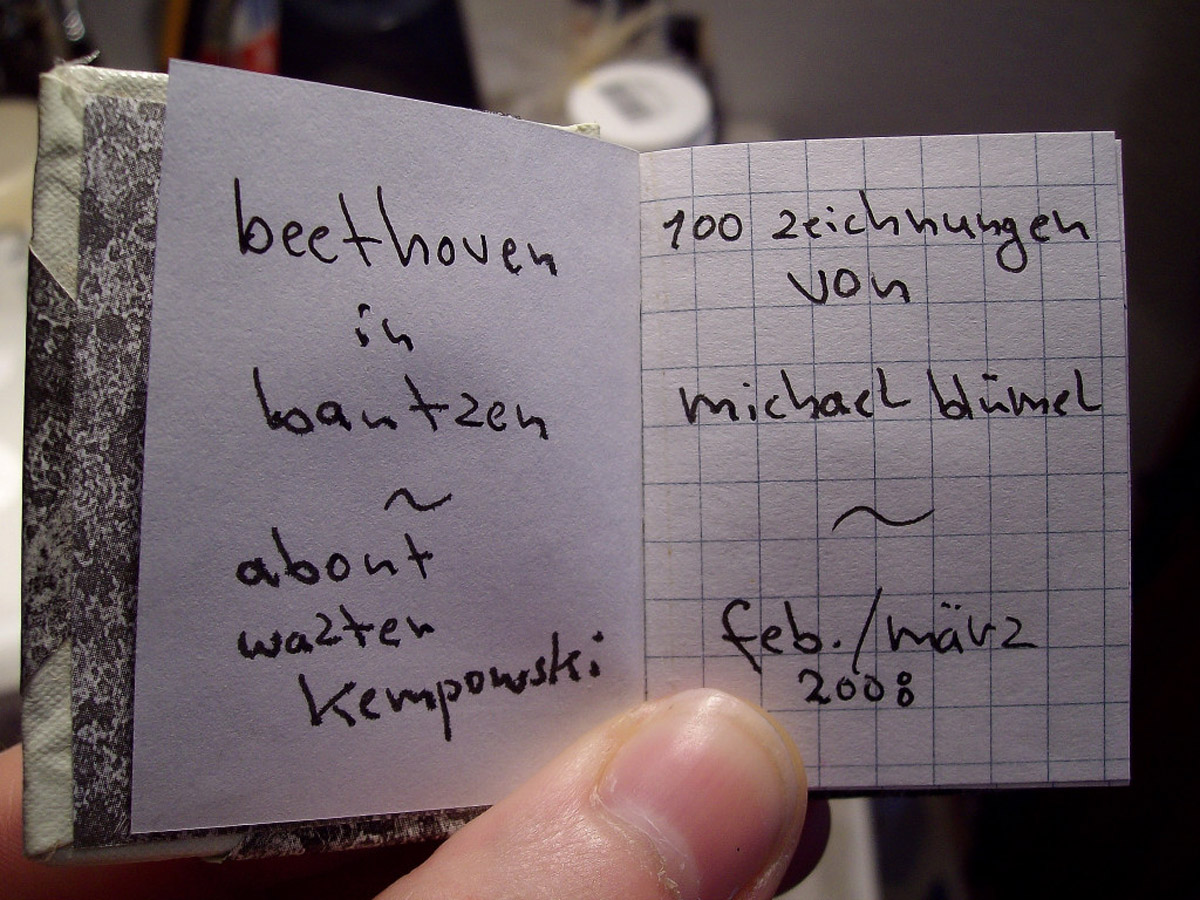 beethoven
in
bautzen
~
about
walter
kempowski
100 zeichnungen
von
michael blümel
~
feb./märz
2008